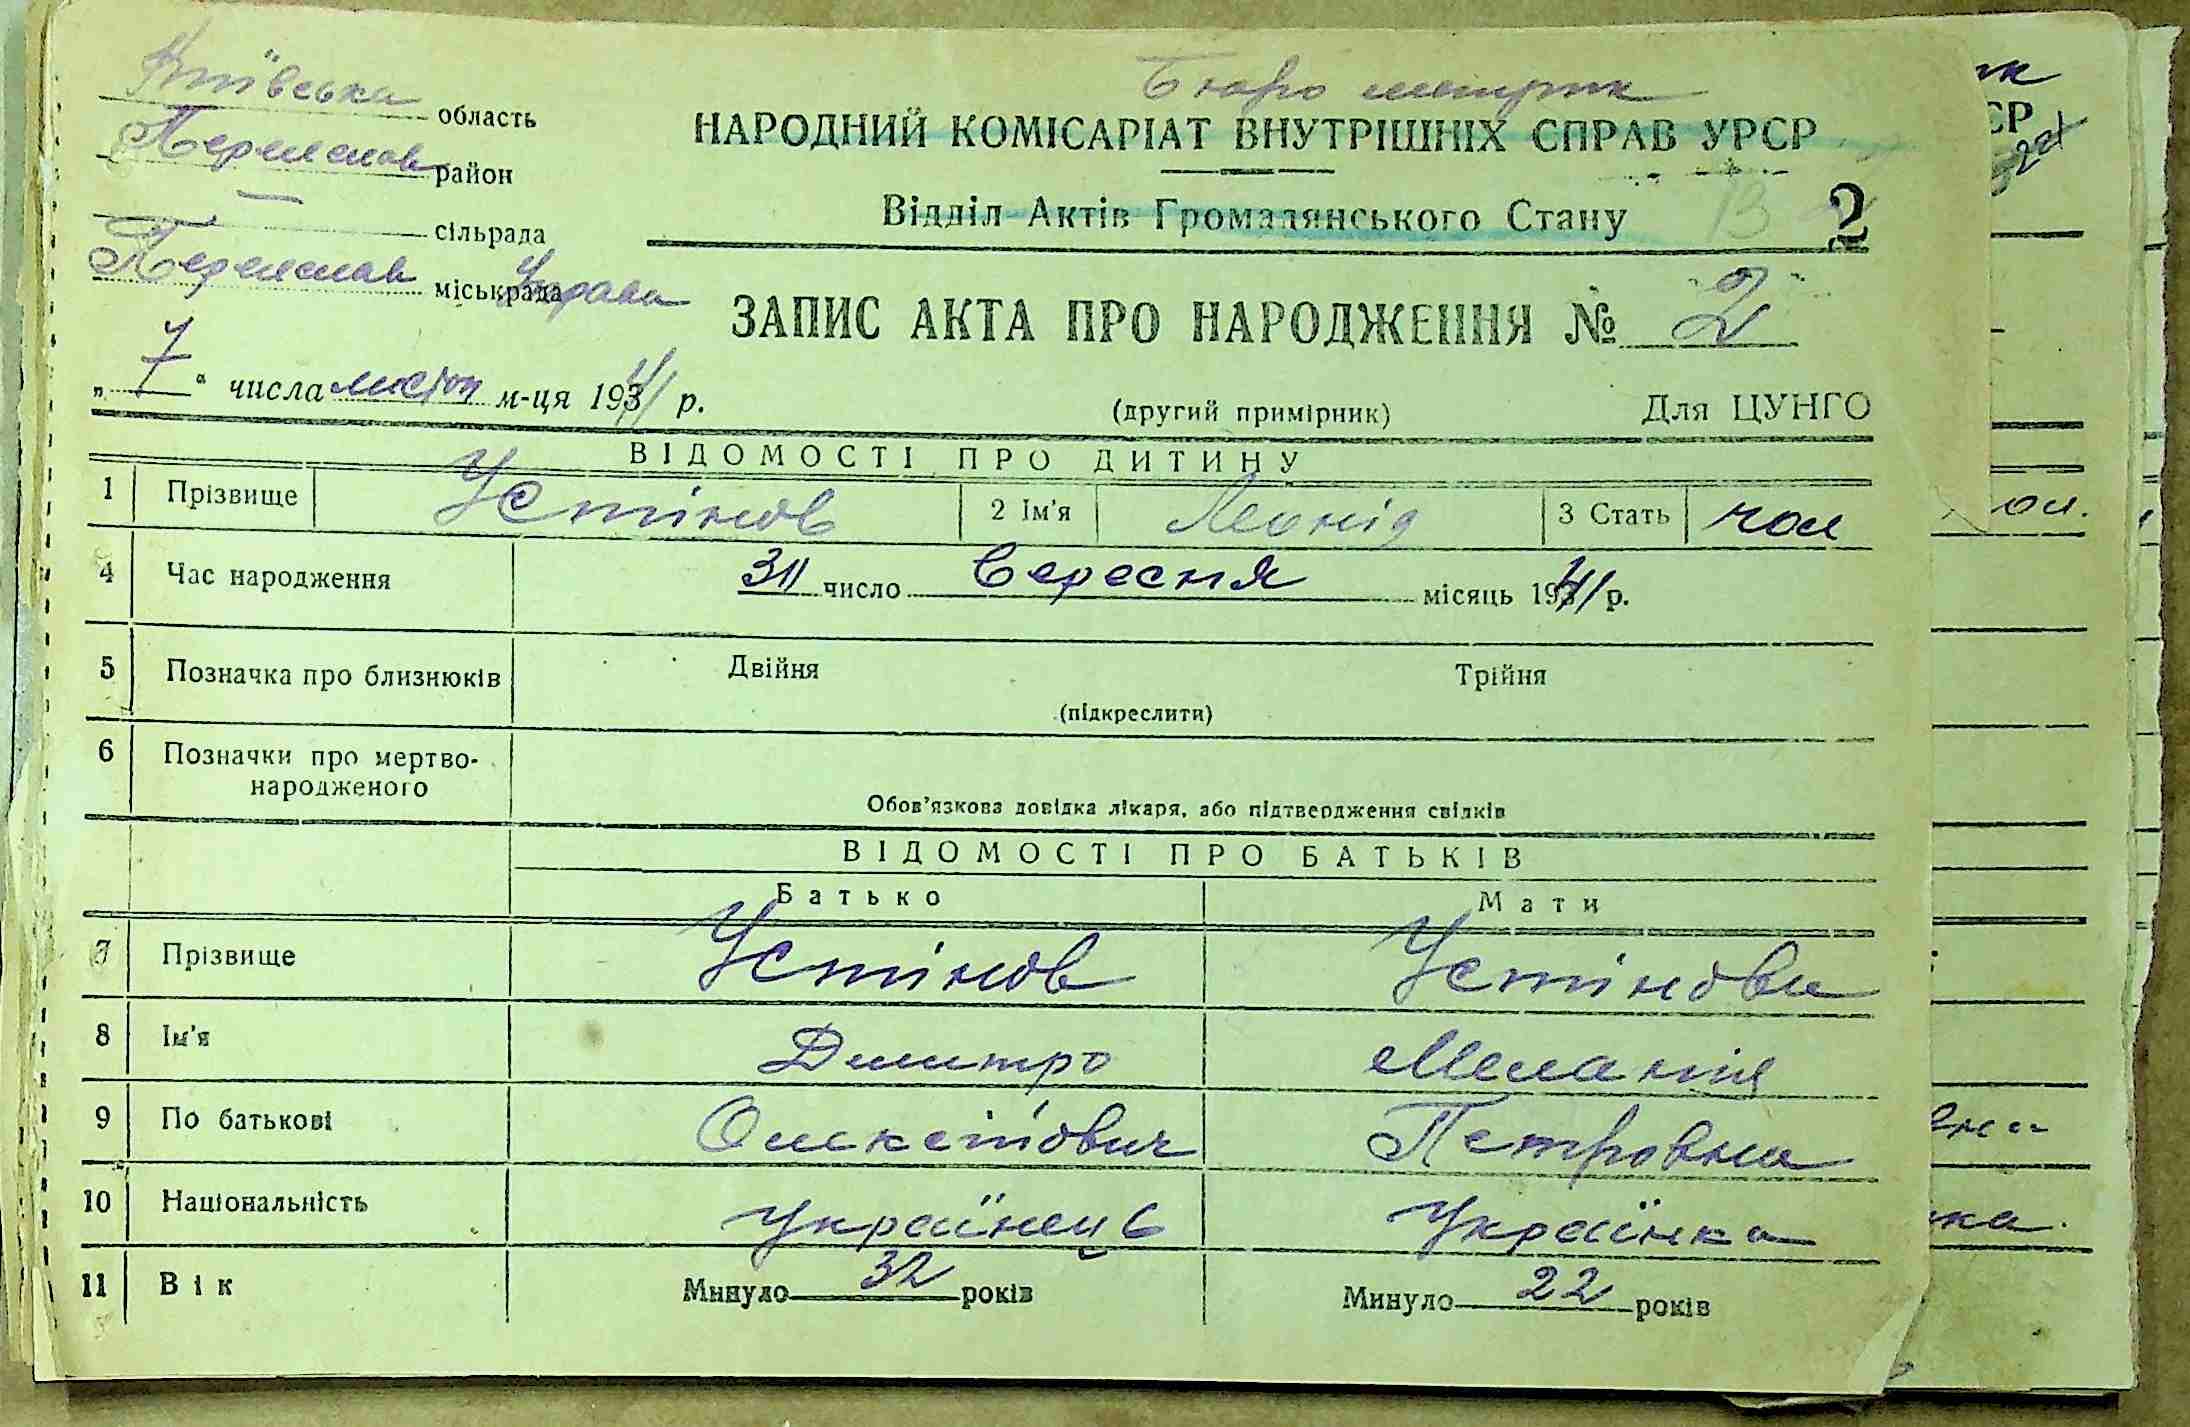 Київська область
Переяслав район
— сільрада
Переяслав міськрада Управа
Бюро метрик
НАРОДНИЙ КОМІСАРІАТ ВНУТРІШНІХ СПРАВ УРСР
Відділ Актів Громадянського Стану
2
ЗАПИС АКТА ПРО НАРОДЖЕННЯ № 2
„7“ числа листоп м-ця 1941 р.
(другий примірник)
Для ЦУНГО
ВІДОМОСТІ ПРО ДИТИНУ
1 Прізвище Устінов 2 Ім'я Леонід 3 Стать чол
4 Час народження 30 число Вересня місяць 1941 р.
5 Позначка про близнюків Двійня Трійня
(підкреслити)
6 Позначки про мертво-
народженого
Обов'язкова довідка лікаря, або підтвердження свідків
ВІДОМОСТІ ПРО БАТЬКІВ
Батько Мати
7 Прізвище Устінов Устінова
8 Ім'я Дмитро Меланія
9 По батькові Олексійович Петровна
10 Національність Українець Українка
11 Вік Минуло 32 років Минуло 22 років